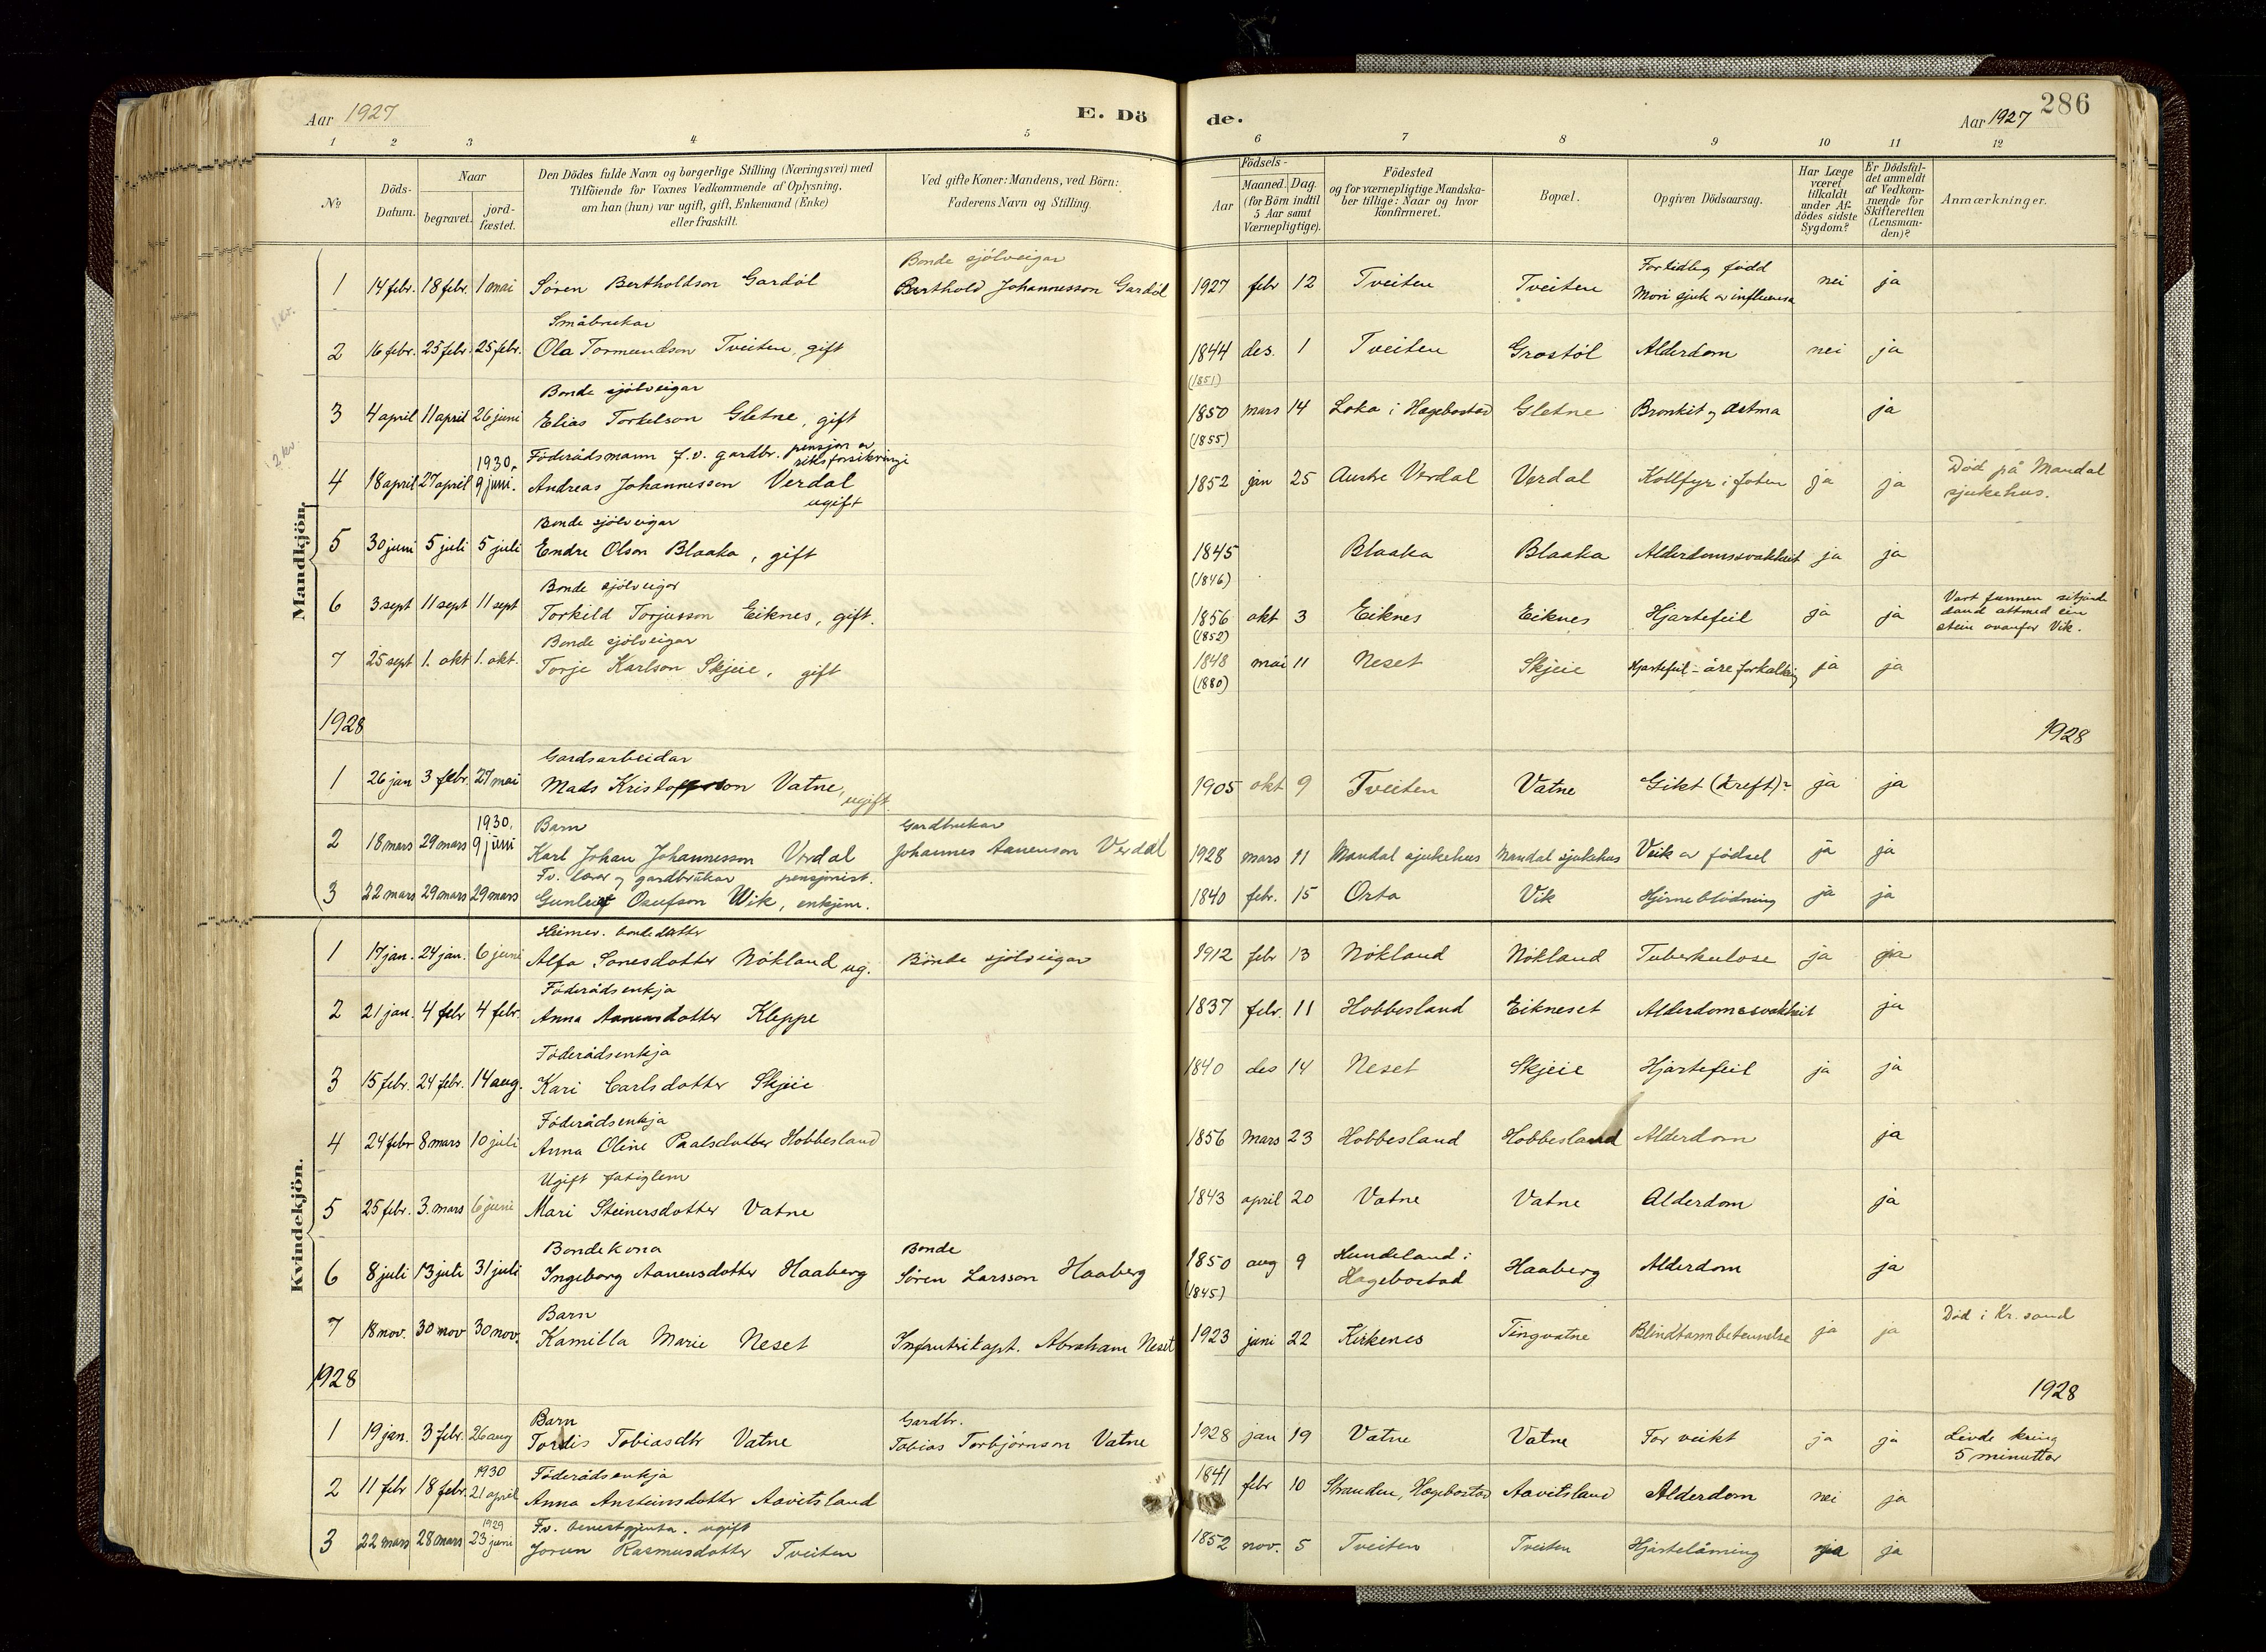 Aar 1927
E. Dö
de.
Aar 1927
286
1 2 3 4 5 6 7 8 9 10 11 12
No
Döds-Datum.
Naar
begravet.
jord-fæstet.
Den Dödes fulde Navn og borgerlige Stilling (Næringsvei) med
Tilföiende for Voxnes Vedkommende af Oplysning,
om han (hun) var ugift, gift, Enkemand (Enke)
eller fraskilt.
Ved gifte Koner: Mandens, ved Börn:
Faderens Navn og Stilling.
Födsels-
Aar
Maaned. Dag.
(for Börn indtil
5 Aar samt
Værnepligtige).
Födested
og for værnepligtige Mandska-
ber tillige: Naar og hvor
konfirmeret.
Bopæl.
Opgiven Dödsaarsag.
Har Læge
været
tilkaldt
under Af-
dödes sidste
Sygdom?
Er Dödsfal-
det anmeldt
af Vedkom-
mende for
Skifteretten
(Lensman-
den)?
Anmærkninger.
Mandkjön.
Bonde sjölveigar Fortidleg född
1 14 febr. 18 febr. 1 mai Sören Bertholdson Gardöl Berthold Johannesson Gardöl 1927 febr 12 Tveiten Tveiten Mori sjuk av influensa nei ja
Småbrukar
2 16 febr. 25 febr. 25 febr. Ola Tormundson Tveiten, gift 1844 des. 1 Tveiten Grostöl Alderdom nei ja
(1851)
Bonde sjölveigar
3 4 april 11 april 26 juni Elias Torkelson Gletne, gift 1850 mars 14 Loka i Hægebostad Gletne Bronkit og astma ja
(1855)
Föderådsmann f.v. gardbr. pensjon av riksforsikringi
4 18 april 27 april 1930. 9 juni. Andreas Johannesson Verdal ugift 1852 jan 25 Austre Verdal Verdal Kollfyr i foten ja ja Död på Mandal sjukehus.
Bonde sjölveigar
5 30 juni 5 juli 5 juli Endre Olson Blaaka, gift 1845 Blaaka Blaaka Alderdomssvakheit ja ja
(1846)
Bonde sjölveigar
6 3 sept 11 sept 11 sept Torkild Torjusson Eiknes, gift. 1856 okt 3 Eiknes Eiknes Hjartefeil ja ja Vart funnen sitjande daud attmed ein stein ovanfor Vik.
(1852)
Bonde sjölveigar
7 25 sept 1. okt 1. okt. Torje Karlson Skjeie, gift 1848 mai 11 Neset Skjeie Hjartefeil - åreforkalking ja ja
(1880)
1928
1928
Gardsarbeidar
1 26 jan 3 febr. 27 mai Mads Kristofferson Vatne, ugift 1905 okt 9 Tveiten Vatne Gikt (kreft)? ja ja
Barn Gardbrukar
2 18 mars 29 mars 1930. 9 juni Karl Johan Johannesson Verdal Johannes Aanenson Verdal 1928 mars 11 Mandal sjukehus Mandal sjukehus Veik av födsel ja ja
Fv. lærar og gardbrukar pensjonist.
3 22 mars 29 mars 29 mars Gunleif Osufson Wik, enkjem. 1840 febr. 15 Orta Vik Hjerneblödning ja ja
Kvindekjön.
Heimev. bondedotter
1 17 jan. 24 jan. 6 juni Alfa Sonesdotter Nökland ug. Bonde sjölveigar 1912 febr 13 Nökland Nökland Tuberkulose ja ja
Föderådsenkja
2 21 jan. 4 febr 4 febr. Anna Aanensdotter Kleppe 1837 febr. 11 Hobbesland Eikneset Alderdomssvakheit ja
Föderådsenkja
3 15 febr. 24 febr. 14 aug. Kari Carlsdotter Skjeie 1840 des 14 Neset Skjeie Hjartefeil ja ja
Föderådsenkja
4 24 febr 8 mars 10 juli Anna Oline Paalsdotter Hobbesland 1856 mars 23 Hobbesland Hobbesland Alderdom ja
Ugift fatiglem
5 25 febr. 3. mars 6 juni Mari Steinersdotter Vatne 1843 april 20 Vatne Vatne Alderdom ja
Bondekona Bonde
6 8 juli 13 juli 31 juli Ingeborg Aanensdotter Haaberg Sören Larsson Haaberg 1850 aug 9 Hundeland i Hægebostad Haaberg Alderdom ja
(1845)
Barn
7 18 nov. 30 nov 30 nov. Kamilla Marie Neset Infantrikapt. Abraham Neset 1923 juni 22 Kirkenes Tingvatne Blindtarmbetennelse ja ja Död i Kr.sand
1928
1928
Barn Gardbr.
1 19 jan. 3 febr. 26 aug Tordis Tobiasdtr Vatne Tobias Torbjörnson Vatne 1928 jan 19 Vatne Vatne For veikt ja ja Livde kring 5 minuttar
Föderådsenkja
2 11 febr 18 febr. 1930 21 april Anna Ansteinsdotter Aavitsland 1841 febr 10 Stranden, Hægebostad Aavitsland Alderdom nei ja
Fv. tenestgjenta. ugift
3 22 mars 28 mars 1929 23 juni Jorun Rasmusdotter Tveiten 1852 nov. 5 Tveiten Tveiten Hjartelåming ja ja